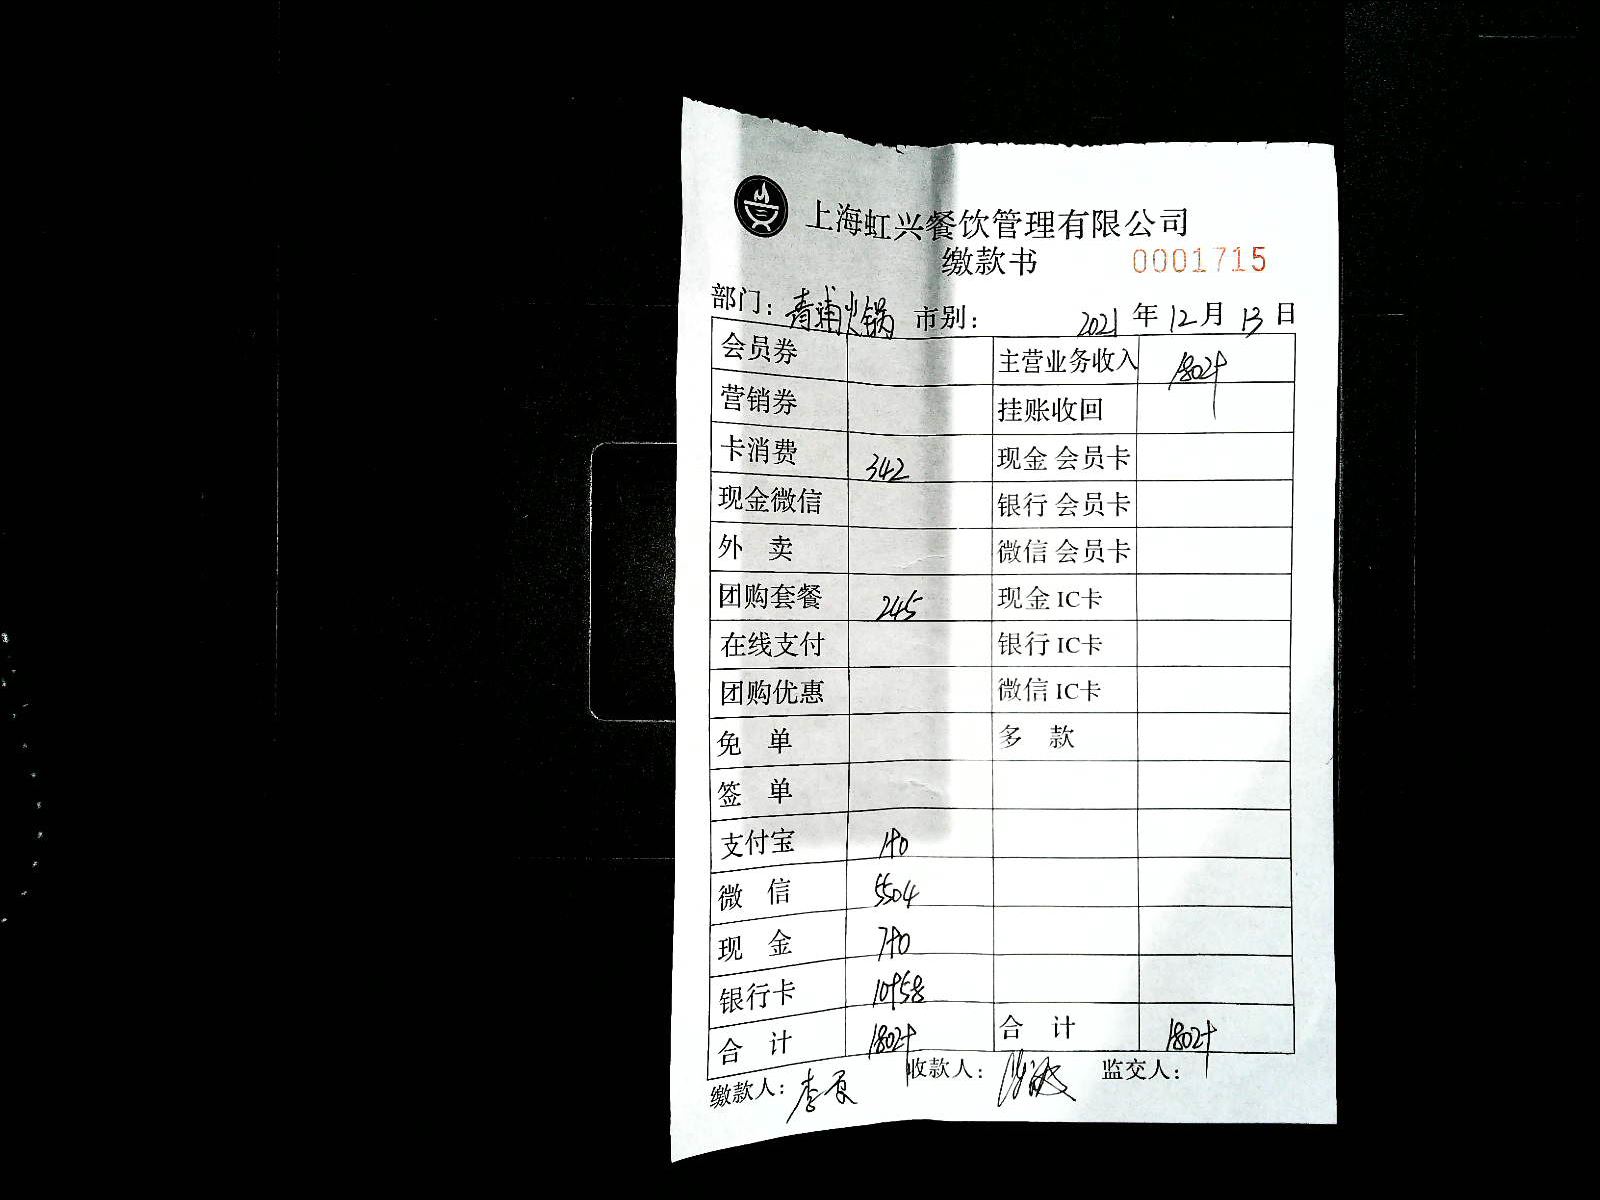 上海虹兴餐饮管理有限公司
缴款书 0001715
部门：青浦火锅 市别： 2021 年 12 月 13 日
会员券 主营业务收入 18029
营销券 挂账收回
卡消费 342 现金 会员卡
现金微信 银行 会员卡
外 卖 微信 会员卡
团购套餐 245 现金 IC卡
在线支付 银行 IC卡
团购优惠 微信 IC卡
免 单 多 款
签 单
支付宝 190
微 信 5504
现 金 790
银行卡 10958
合 计 18029 合 计 18029
缴款人： 收款人： 监交人：